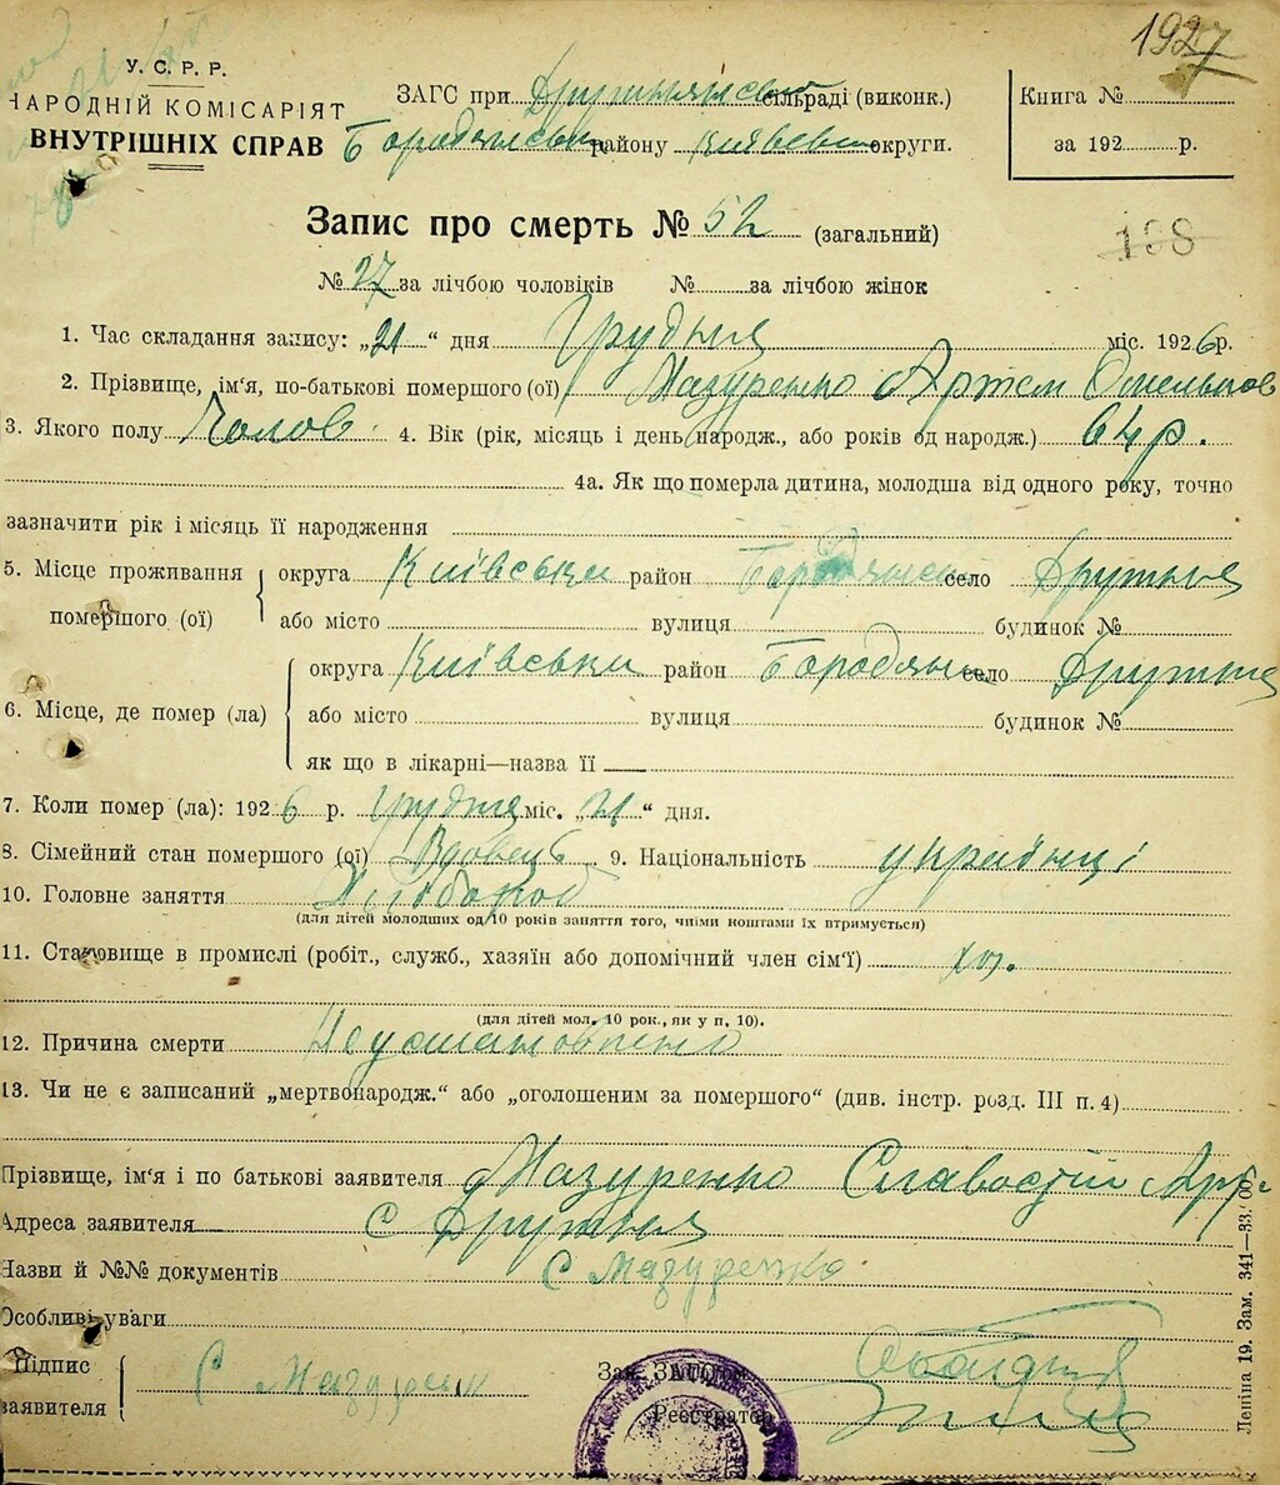 1927
У. С. Р. Р.
НАРОДНІЙ КОМІСАРІЯТ
ВНУТРІШНІХ СПРАВ
ЗАГС при Друтнянськ сільраді (виконк.)
Бородянськ району Київськ округи.
Книга №
за 192 р.
Запис про смерть № 52 (загальний)
198
№ 27 за лічбою чоловіків № за лічбою жінок
1. Час складання запису: „21“ дня Грудня міс. 1926 р.
2. Прізвище, ім'я, по-батькові помершого (ої) Мазуренко Артем Омельков
3. Якого полу Чолов. 4. Вік (рік, місяць і день народж., або років од народж.) 64 р.
4а. Як що померла дитина, молодша від одного року, точно
зазначити рік і місяць її народження
5. Місце проживання помершого (ої) округа Київська район Бородянськ село Друтня
або місто вулиця будинок №
6. Місце, де помер (ла) округа Київська район Бородянськ село Друтня
або місто вулиця будинок №
як що в лікарні—назва її
7. Коли помер (ла): 1926 р. Грудня міс. „21“ дня.
8. Сімейний стан помершого (ої) Вдовець 9. Національність українці
10. Головне заняття Хлібороб
(для дітей молодших од 10 років заняття того, чиїми коштами їх втримується)
11. Становище в промислі (робіт., служб., хазяїн або допомічний член сім'ї) хаз.
(для дітей мол. 10 рок., як у п. 10).
12. Причина смерти Неустановлено
13. Чи не є записаний „мертвонародж.“ або „оголошеним за помершого“ (див. інстр. розд. III п. 4)
Прізвище, ім'я і по батькові заявителя Мазуренко Арт.
Адреса заявителя с Друтня
Назви й №№ документів С Мазуренко
Особливі уваги
Підпис заявителя С Мазуренко
Зав. ЗАГС'ом
Реєстратор
Леніна 19. Зам. 341—33.